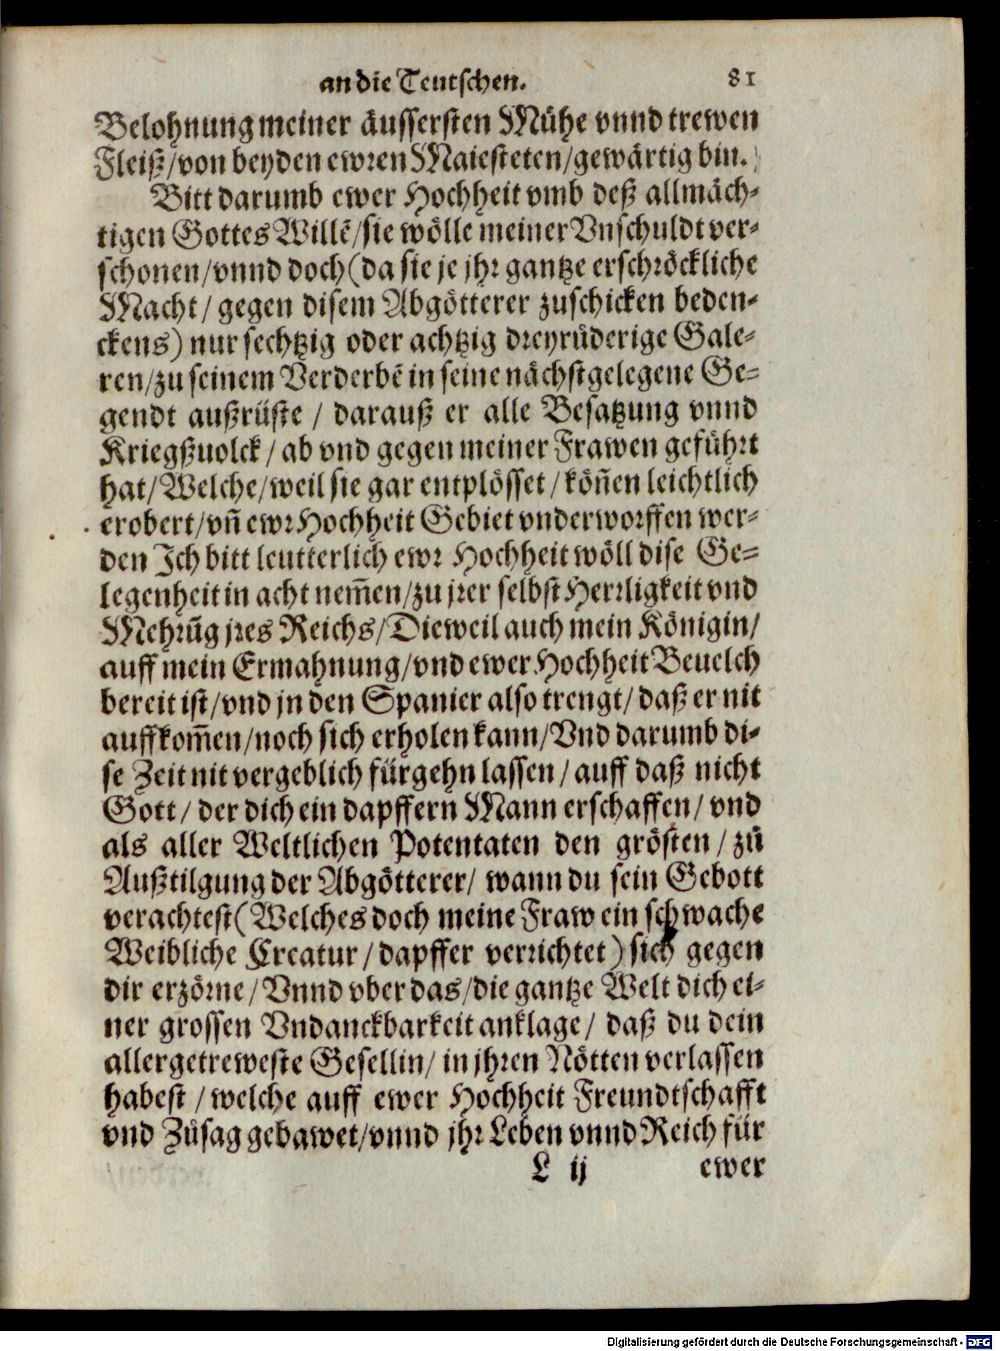 an die Teutschen. 81
Belohnung meiner äussersten Mühe vnnd trewen
Fleiß/von beyden ewren Maiesteten/gewärtig bin.
Bitt darumb ewer Hochheit vmb deß allmäch-
tigen Gottes Willē/sie wölle meiner Vnschuldt ver-
schonen/vnnd doch (da sie je jhr gantze erschröckliche
Macht/ gegen disem Abgötterer zuschicken beden-
ckens) nur sechtzig oder achtzig dreyrüderige Gale-
ren/zu seinem Verderbē in seine nächstgelegene Ge-
gendt außrüste / darauß er alle Besatzung vnnd
Kriegßuolck/ ab vnd gegen meiner Frawen geführt
hat/Welche/weil sie gar entplösset/ köñen leichtlich
erobert/vñ ewr Hochheit Gebiet vnderworffen wer-
den Ich bitt leutterlich ewr Hochheit wöll dise Ge-
legenheit in acht nem̄en/zu jrer selbst Herrligkeit vnd
Mehrūg jres Reichs/Dieweil auch mein Königin/
auff mein Ermahnung/vnd ewer Hochheit Beuelch
bereit ist/vnd jn den Spanier also trengt/ daß er nit
auffkom̄en/noch sich erholen kann/Vnd darumb di-
se Zeit nit vergeblich fürgehn lassen/ auff daß nicht
Gott/ der dich ein dapffern Mann erschaffen/ vnd
als aller Weltlichen Potentaten den grösten/ zů
Außtilgung der Abgötterer/ wann du sein Gebott
verachtest (Welches doch meine Fraw ein schwache
Weibliche Creatur/ dapffer verrichtet) sich gegen
dir erzörne/ Vnnd vber das/die gantze Welt dich ei-
ner grossen Vndanckbarkeit anklage/ daß du dein
allergetreweste Gesellin/ in jhren Nötten verlassen
habest / welche auff ewer Hochheit Freundtschafft
vnd Zůsag gebawet/vnnd jhr Leben vnnd Reich für
L ij ewer
Digitalisierung gefördert durch die Deutsche Forschungsgemeinschaft - DFG